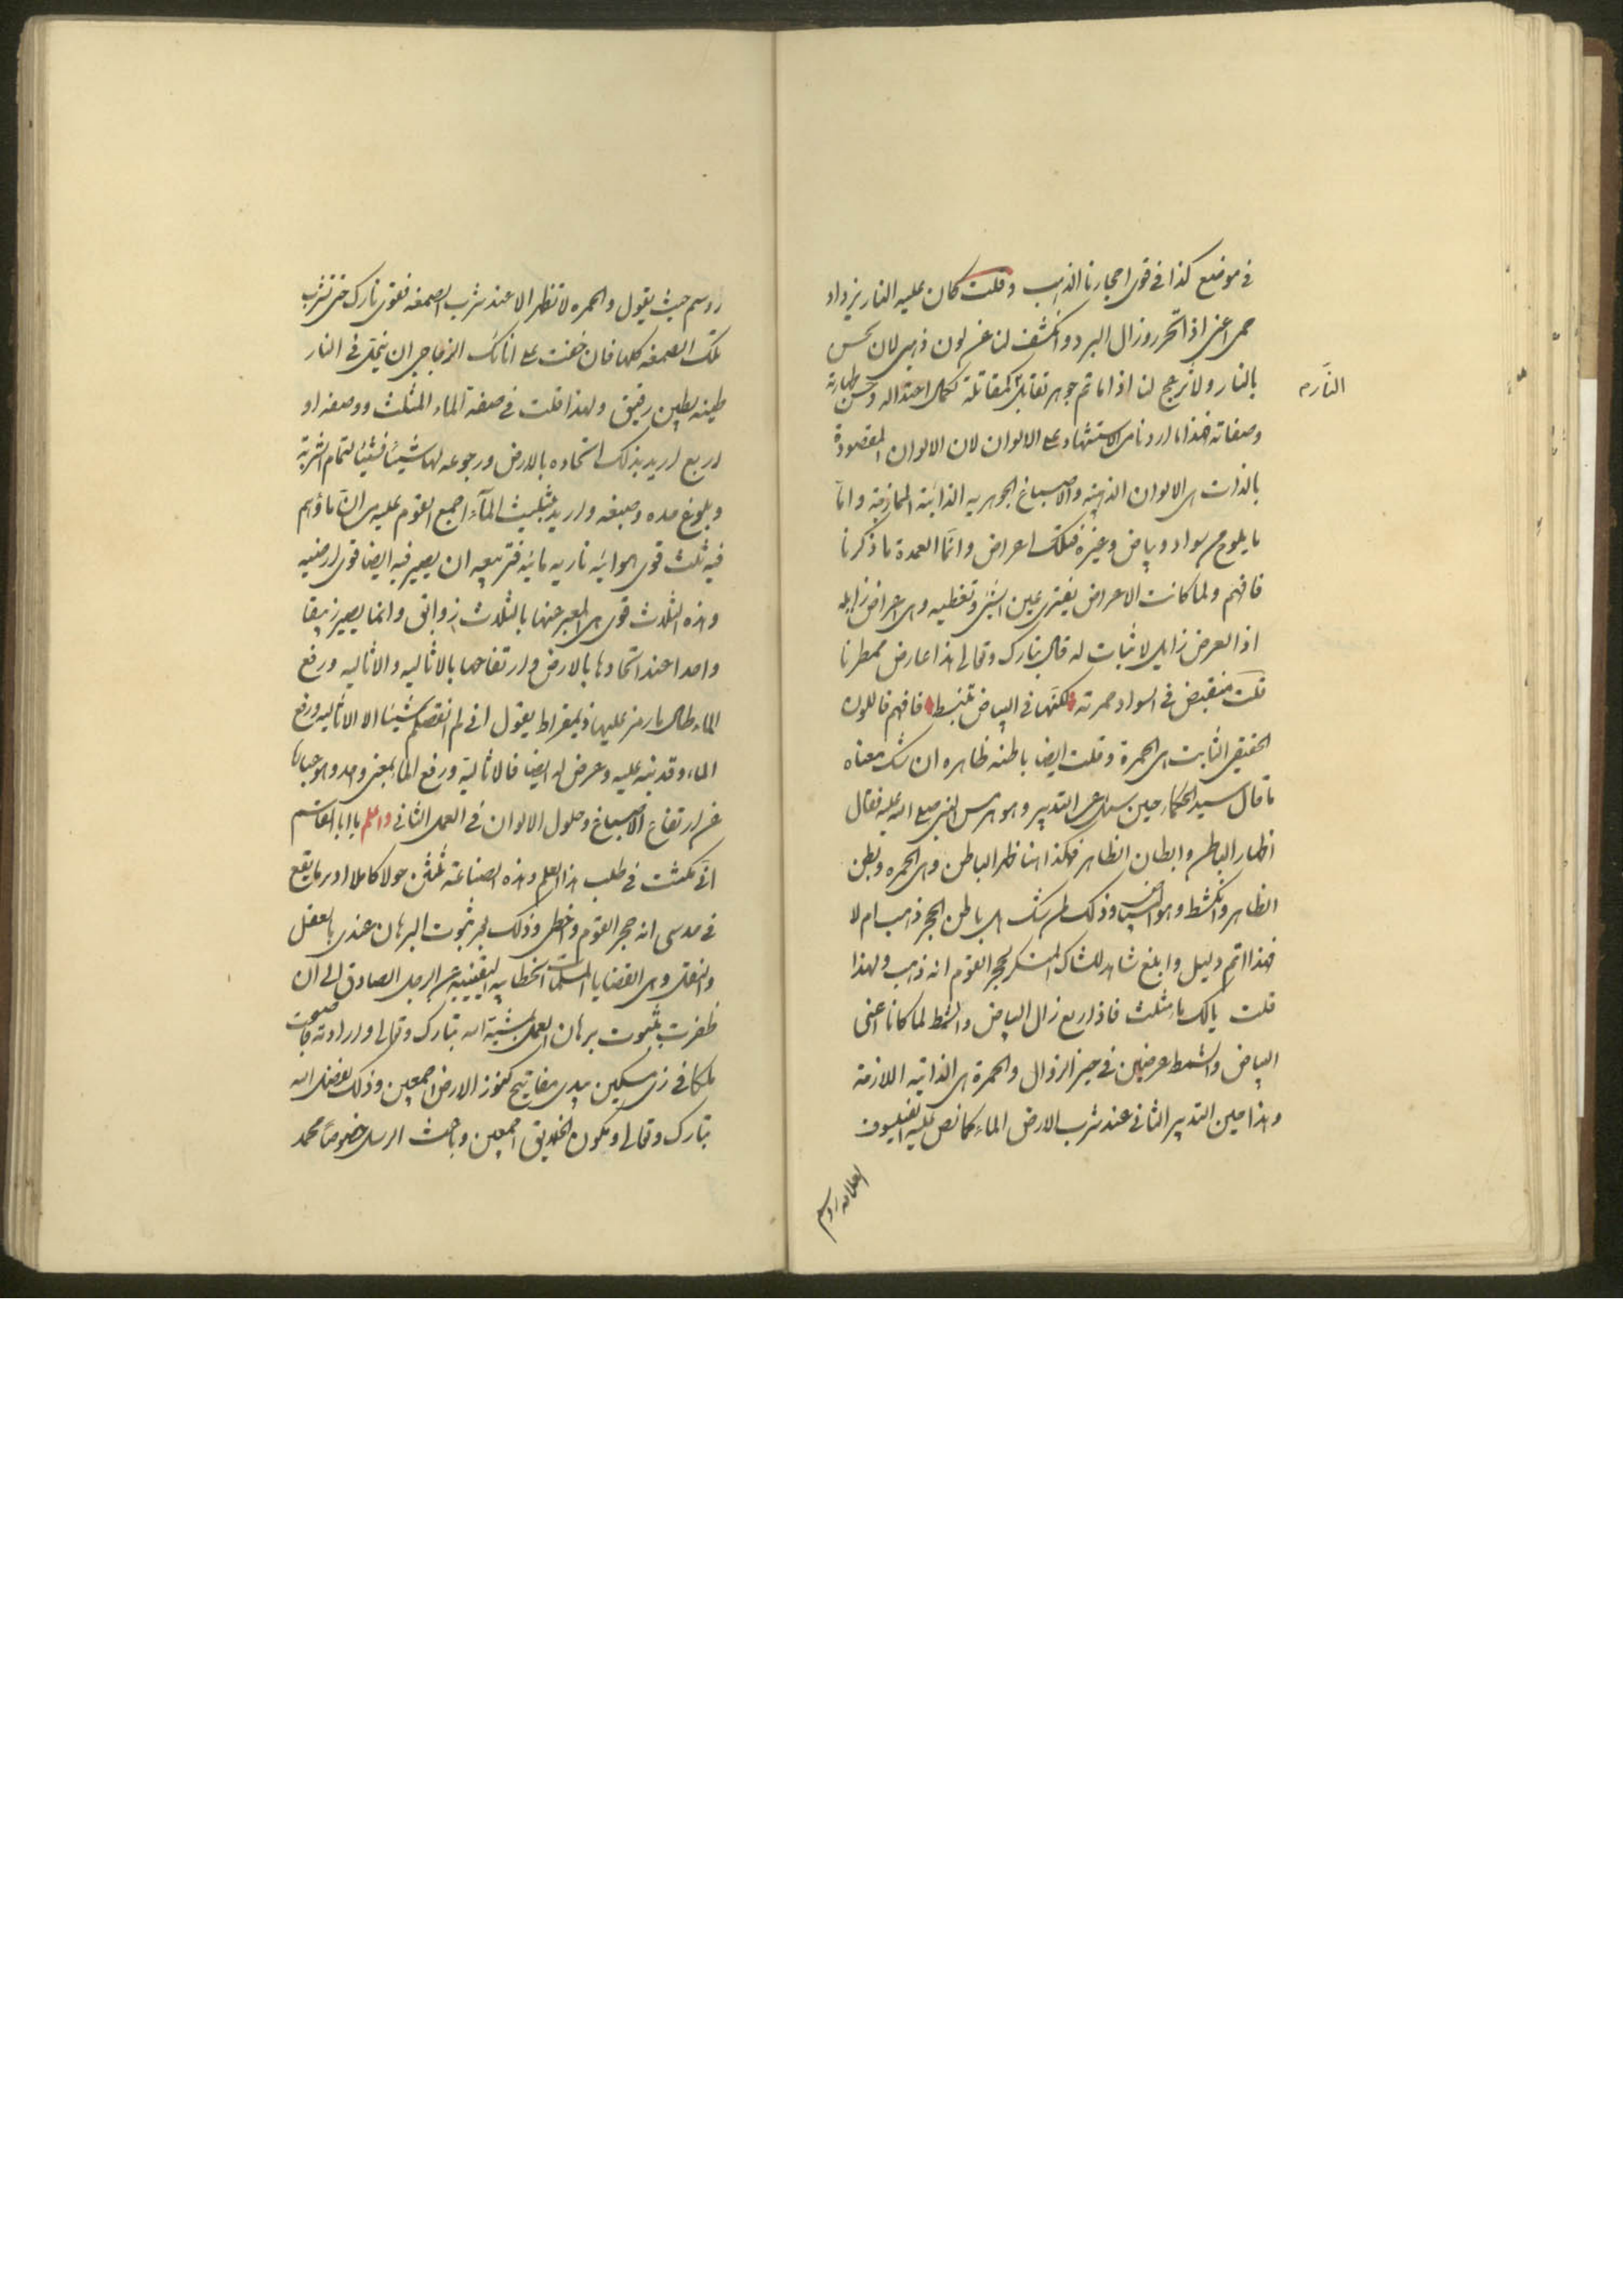 في موضع كذا في قوى احجارنا الذهب وقلت كان عليه النار يزداد
حمى اعنى اذا تحرر وزال البرد وانكشف لنا عن لون ذهبى لان يحس
بالنار ولا ترعج لنا اذا ما تم جوهر تقابل كمقاتلة كمال اعتداله وحسن طهارته
النار م
وصفاته فهذا ما اردنا من الاستشهاد على الالوان لان الالوان المقصودة
بالذات هى الالوان الذهبية والاصباغ الجوهريه الذاتية الممازجة واما
ما يلوح من سواد وبياض وغيره فتلك اعراض وانما العمدة ما ذكرنا
فافهم ولما كانت الاعراض يعترى عين الشئ وتغطيه وهى اعراض زايله
اذ العرض زايل لا ثبات له قال تبارك وتعالى هذا عارض ممطرنا
قلت منقبض فى السواد حمرته لكنها فى البياض تنبسط فافهم فاللون
الحقيقى الثابت هى الحمرة وقلت ايضا باطنه ظاهره ان شك معناه
ما قال سيد الحكماء حين سئل عن التدبير وهو هرمس النبى صلى الله عليه فقال
اظهار الباطن وابطان الظاهر فهكذا هنا ظهر الباطن وهى الحمره وبطن
الظاهر وانكشط وهو البياض وذلك لمن شك هل باطن الحجر ذهب ام لا
فهذا اتم دليل وابلغ شاهد للشاك المنكر لحجر القوم انه ذهب ولهذا
قلت يا لك يا مثلث فاذا ربع زال البياض والشمط لما كانا اعنى
البياض والشمط عرضين فى حيز الزوال والحمرة هى الذاتيه اللازمة
وهذا حين التدبير الثانى عند شرب الارض الماء كما نص عليه الفيلسوف
العلامه روسم
روسم حيث يقول والحمره لا تظهر الا عند شرب الصمغه فقوى نارك حتى تشرب
تلك الصمغه كلها فان خفت على انائك الزجاجى ان ينحل فى النار
طينه بطين رقيق ولهذا قلت فى صفة الماء المثلث ووصفه او
اربع اريد بذلك اتحاده بالارض ورجوعه لها شيئا فشيئا لتمام الشربة
وبلوغ مده وصبغه واريد بتثليث الماء اجمع القوم عليه من ان ماؤهم
فيه ثلث قوى هوائيه ناريه مائيه فتربيعه ان يصير فيه ايضا قوى ارضيه
وهذه الثلث قوى هى المعبر عنها بالثلث زوابق وانما يصير زيبقا
واحدا عند اتحادها بالارض وارتفاعها بالاثاليه والاثاليه ورفع
الماء طال ما رمز عليها ذيمقراط يقول انى لم انقصكم شيئا الا الاثاليه ورفع
الماء وقد نبه عليه وعرض له ايضا فالاثالية ورفع الماء بمعنى واحد وهو عبارة
عن ارتفاع الاصباغ وحلول الالوان فى العمل الثانى واعلم يا ابا القاسم
انى مكثت فى طلب هذا العلم وهذه الصناعة ثلثين حولا كاملا ادبر ما يقع
فى حدسى انه حجر القوم واخطى وذلك لجر ثبوت البرهان عندى بالعقل
والنقل وهى القضايا المسلمات الخطابيه اليقينيه عن الرجل الصادق الى ان
ظفرت بثبوت برهان العمل بمشية الله تبارك وتعالى وارادته فاصبحت
ملكا فى زى مسكين بيدى مفاتيح كنوز الارض اجمعين وذلك بفضل الله
تبارك وتعالى ومكون الخلايق اجمعين وباعث الرسل خصوصا محمد